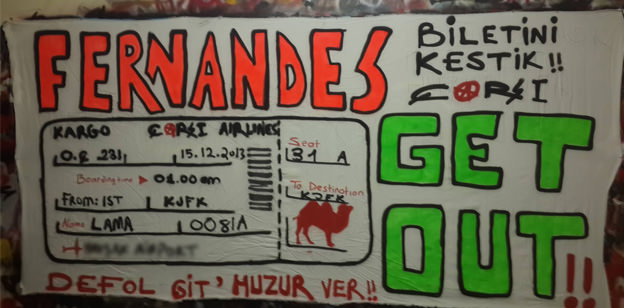 FERNANDES
BİLETİNİ
KESTİK!!
ÇARŞI
KARGO ÇARŞI AIRLINES
15.12.2013
Boarding time 04.00 am
From: IST KJFK
Name LAMA 0081A
Seat
31 A
To Destination
KJFK
GET
OUT!!
DEFOL GİT' HUZUR VER!!